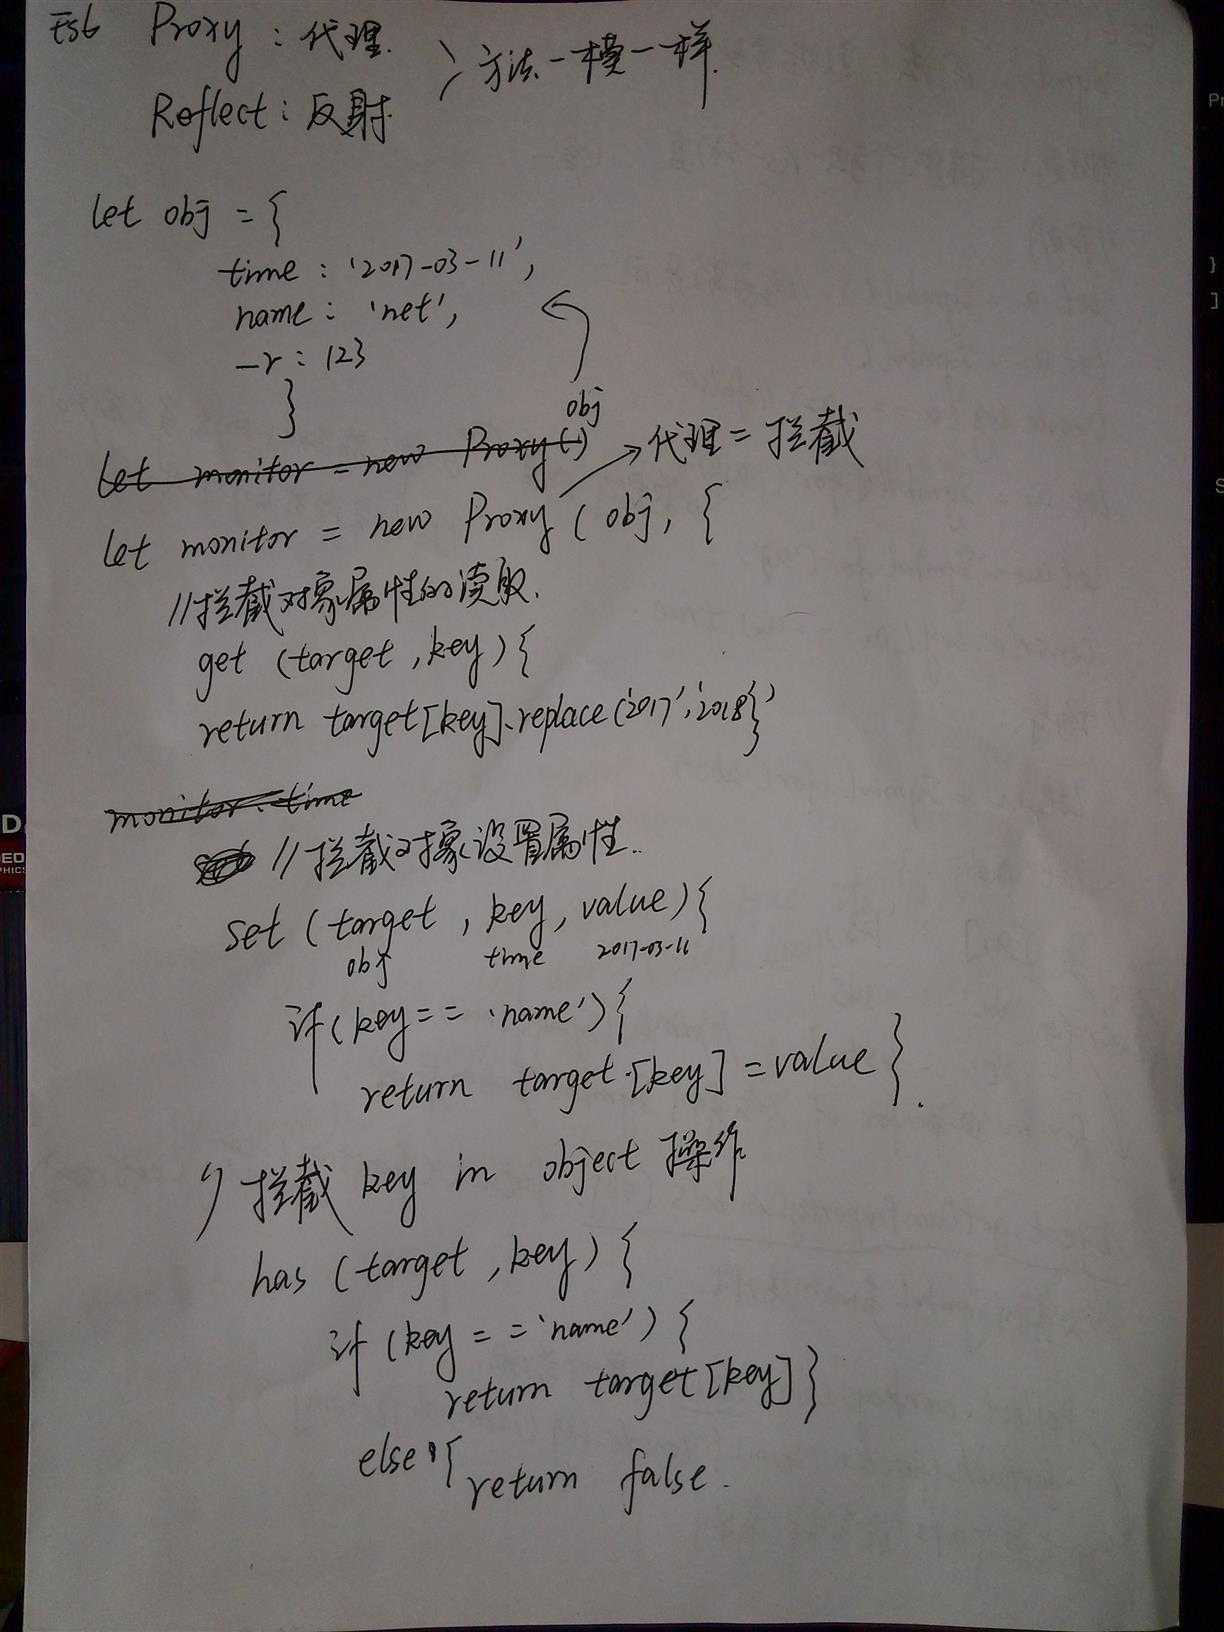 ES6 Proxy : 代理.
Reflect : 反射.
} 方法一模一样.
let obj = {
time : '2017-03-11',
name : 'net',
_r : 123
}
obj
let monitor = new Proxy()
→ 代理 = 拦截
let monitor = new Proxy ( obj, {
//拦截对象属性的读取.
get (target , key) {
return target[key].replace('2017','2018}'
monitor.time
//拦截对象设置属性..
set ( target , key, value) {
obj time 2017-03-11
if (key == 'name') {
return target.[key] = value }.
// 拦截 key in object 操作
has (target , key) {
if (key == 'name') {
return target [key] }
else {
return false.
Pr
}
]
S
D
ED
PHICS